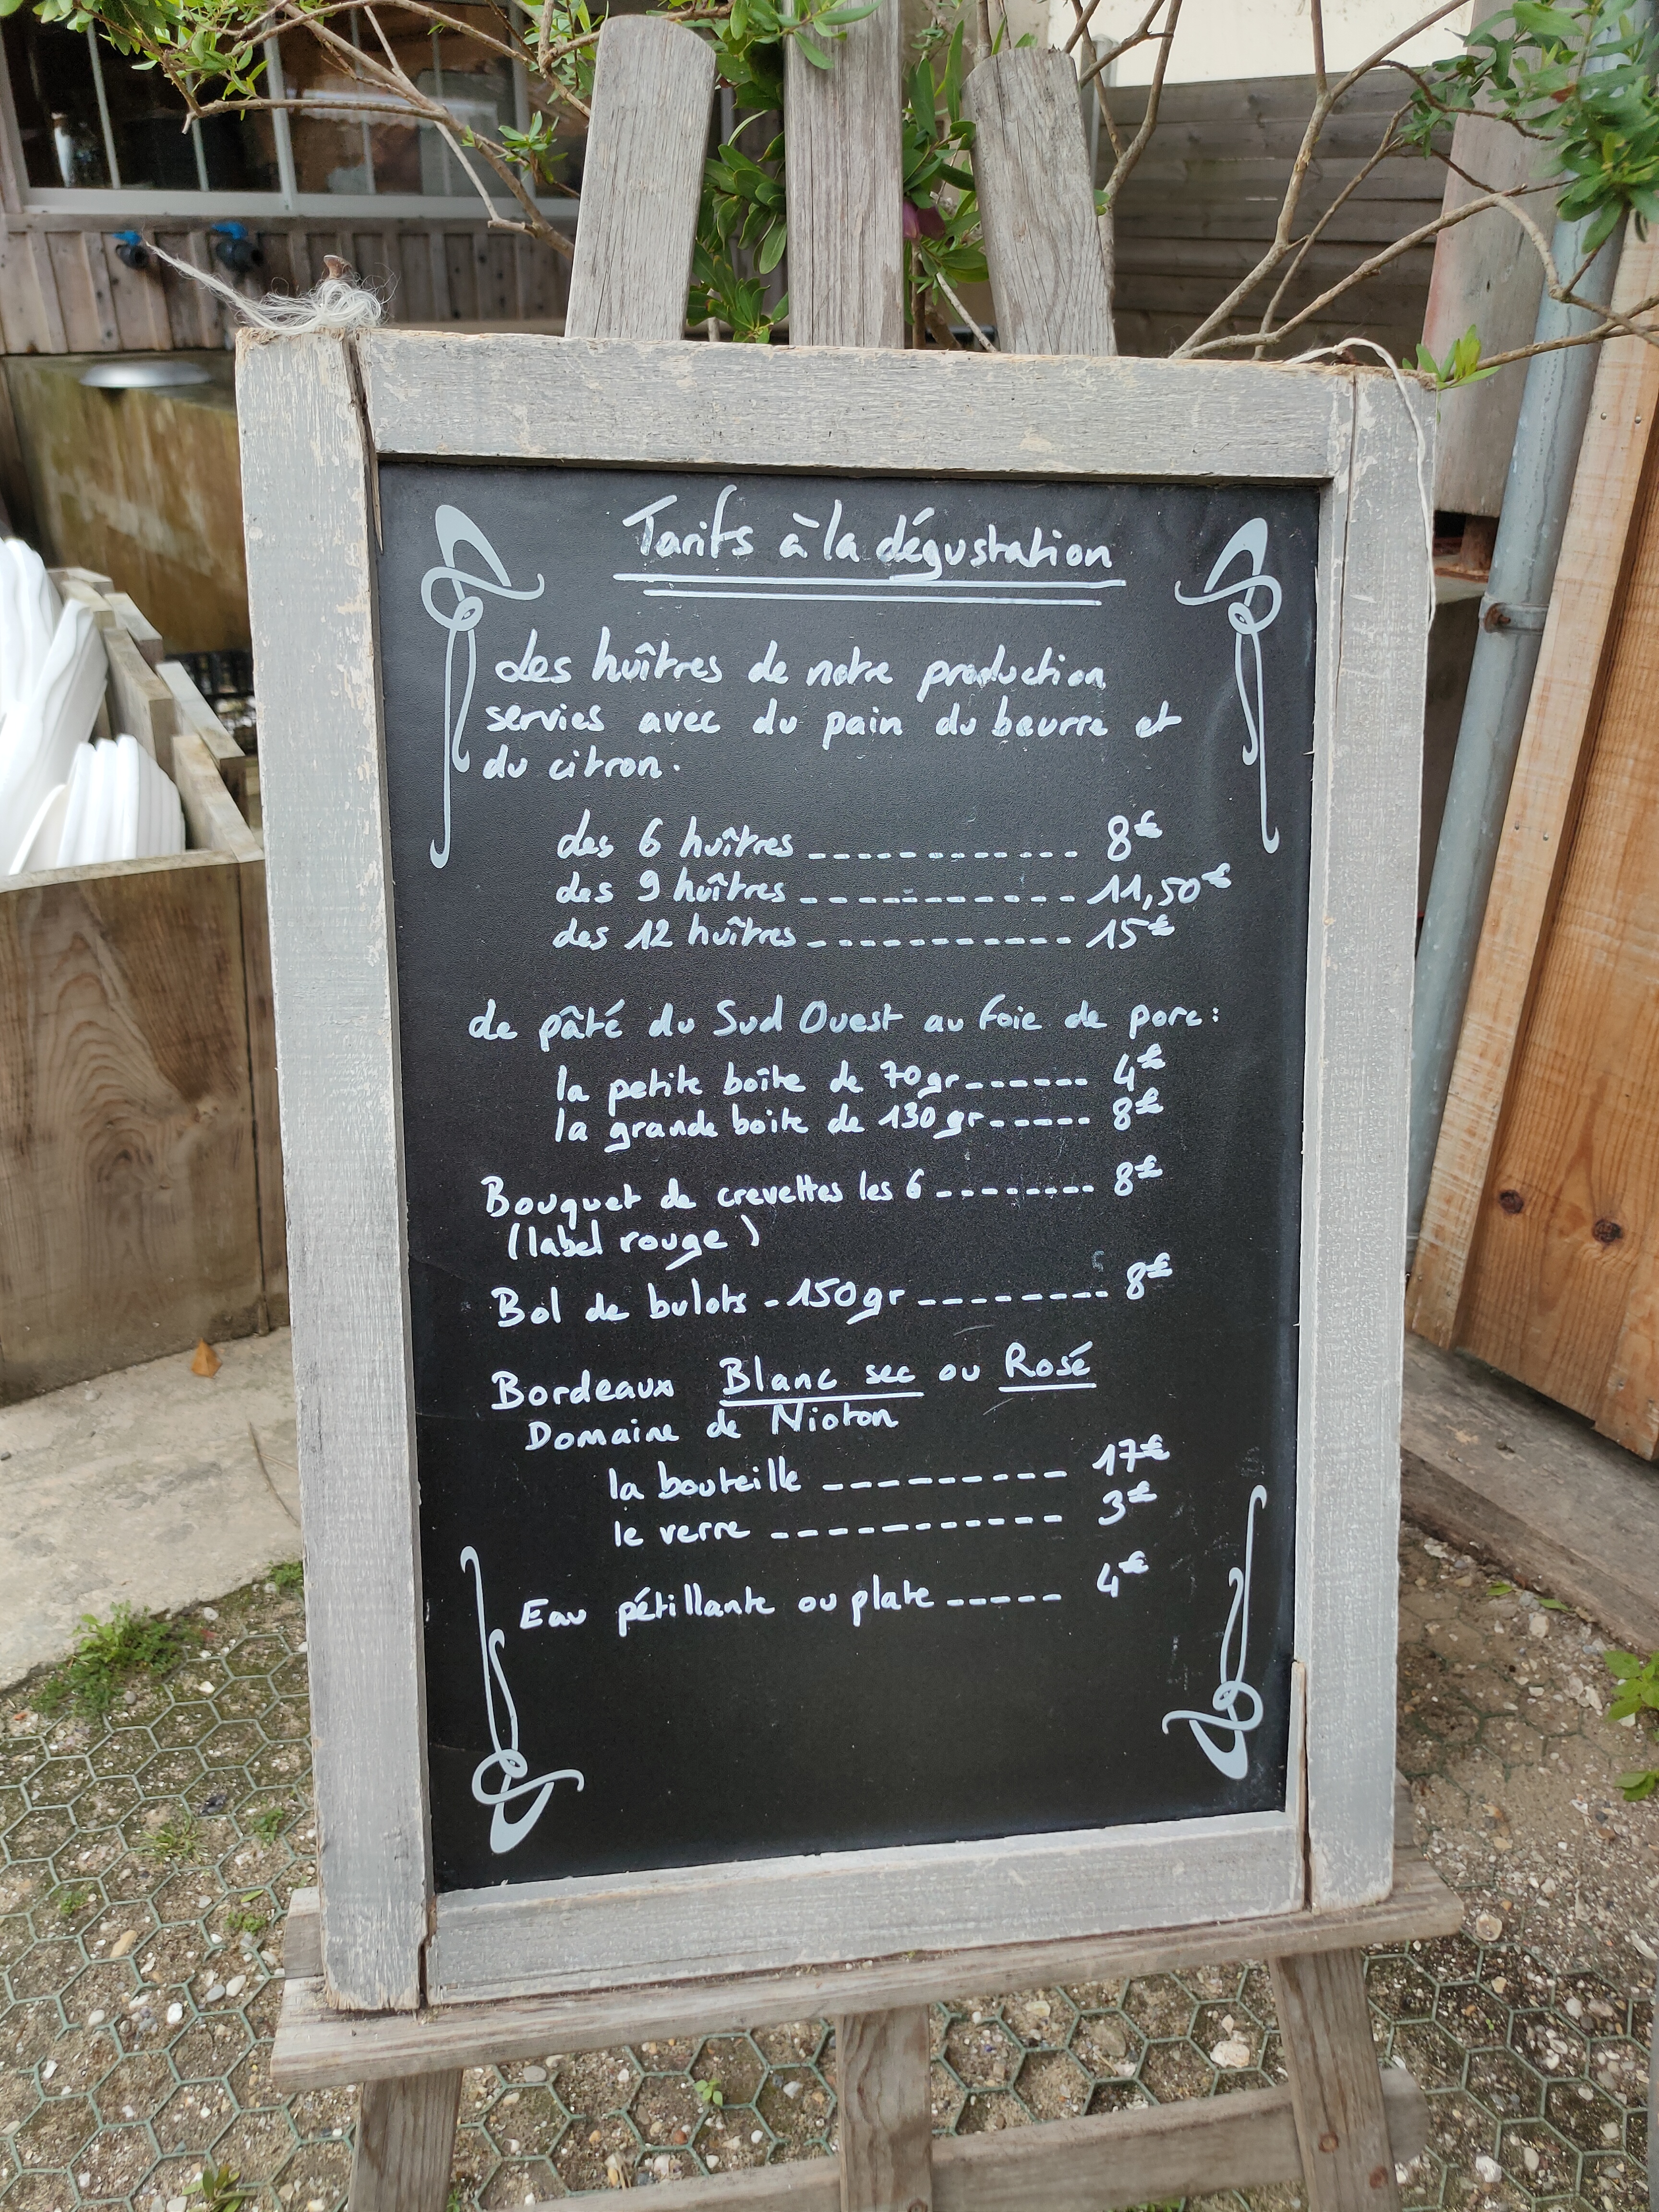 Tarifs à la dégustation
des huîtres de notre production
servies avec du pain du beurre et
du citron.
des 6 huîtres ------------ 8€
des 9 huîtres ------------ 11,50€
des 12 huîtres ------------ 15€
de pâté du Sud Ouest au foie de porc :
la petite boîte de 70gr ------ 4€
la grande boite de 130gr ----- 8€
Bouquet de crevettes les 6 -------- 8€
(label rouge)
Bol de bulots - 150gr --------- 8€
Bordeaux Blanc sec ou Rosé
Domaine de Nioton
la bouteille --------- 17€
le verre ----------- 3€
Eau pétillante ou plate ----- 4€